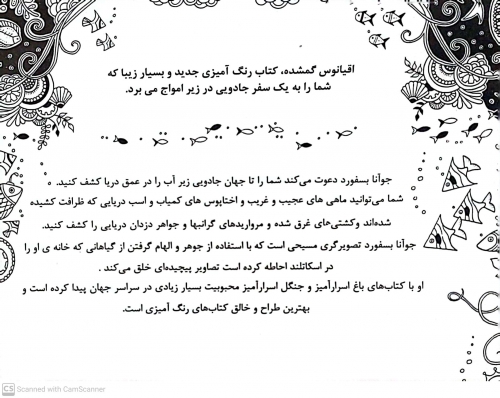 اقیانوس گمشده، کتاب رنگ آمیزی جدید و بسیار زیبا که
شما را به یک سفر جادویی در زیر امواج می برد.
جوآنا بسفورد دعوت می‌کند شما را تا جهان جادویی زیر آب را در عمق دریا کشف کنید.
شما می‌توانید ماهی های عجیب و غریب و اختاپوس های کمیاب و اسب دریایی که ظرافت کشیده
شده‌اند وکشتی‌های غرق شده و مرواریدهای گرانبها و جواهر دزدان دریایی را کشف کنید.
جوآنا بسفورد تصویرگری مسیحی است که با استفاده از جوهر و الهام گرفتن از گیاهانی که خانه ی او را
در اسکاتلند احاطه کرده است تصاویر پیچیده‌ای خلق می‌کند .
او با کتاب‌های باغ اسرارآمیز و جنگل اسرارآمیز محبوبیت بسیار زیادی در سراسر جهان پیدا کرده است و
بهترین طراح و خالق کتاب‌های رنگ آمیزی است.
CS Scanned with CamScanner